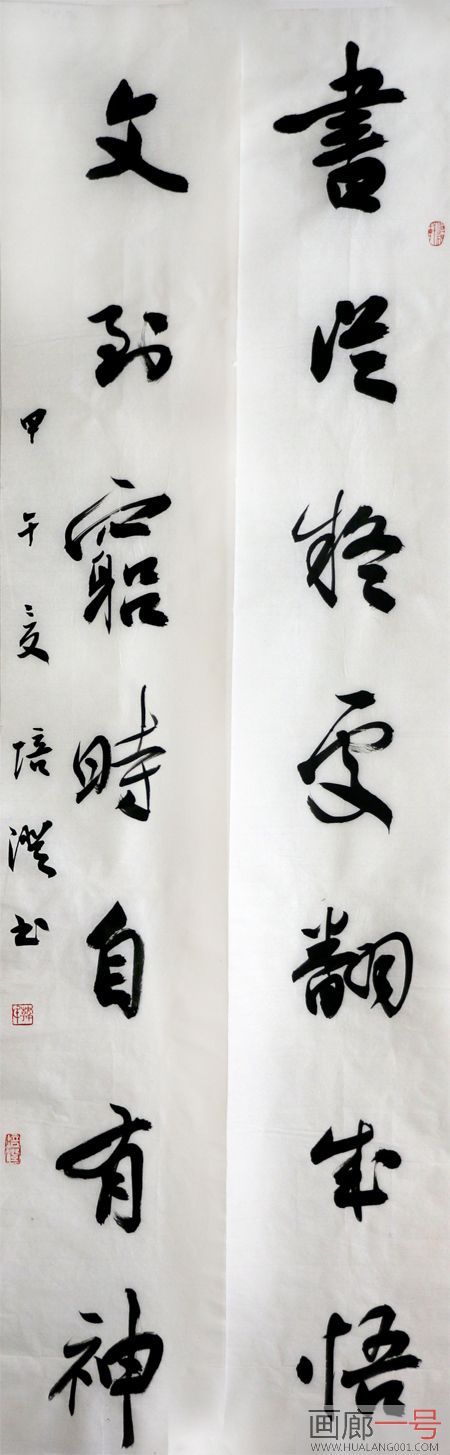 書從疑處翻成悟
文到窮時自有神
甲午夏培澄书
画廊一号
WWW.HUALANG001.COM